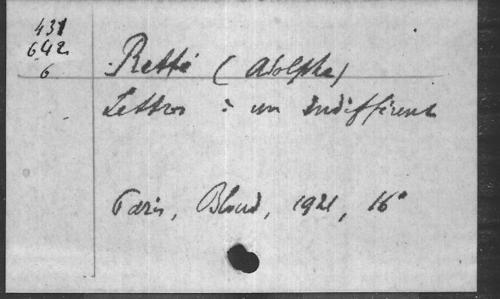 431
642
6
Retté (Adolphe)
Lettres à un Indifférent
Paris, Bloud, 1921, 16°